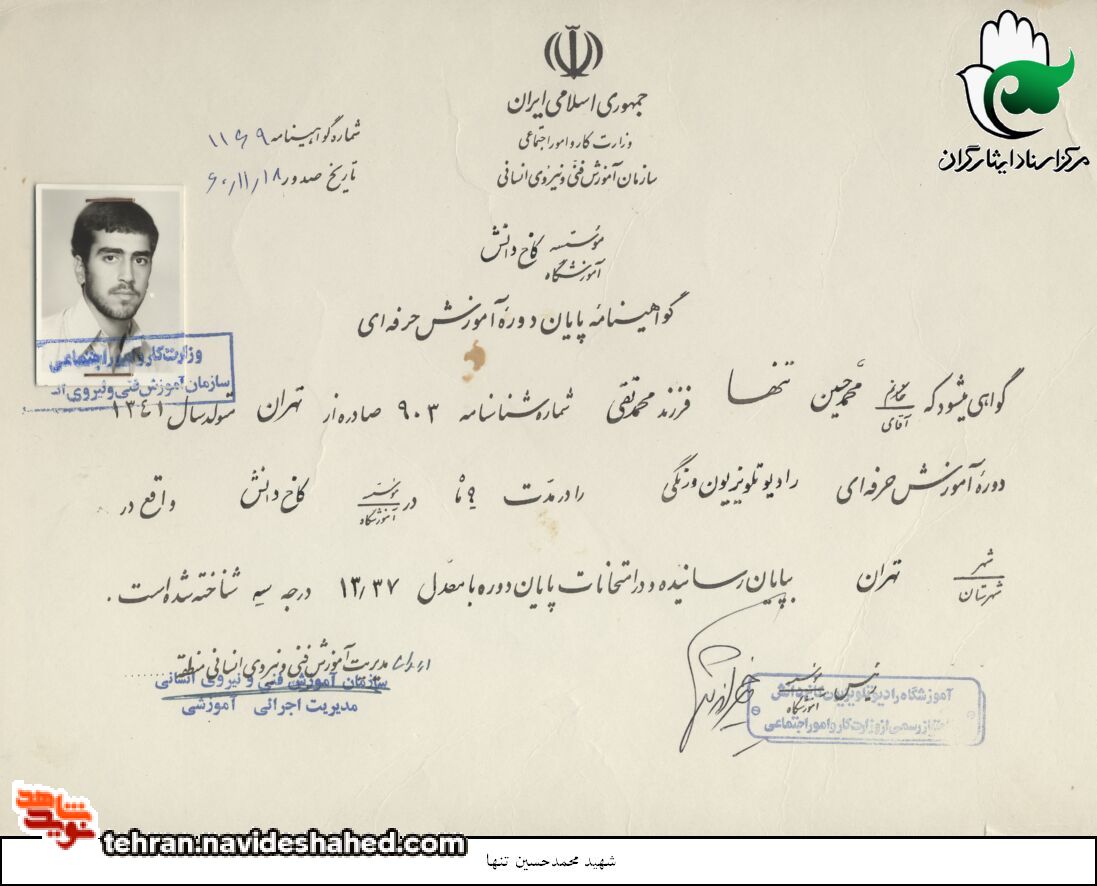 جمهوری اسلامی ایران
وزارت کار و امور اجتماعی
سازمان آموزش فنی و نیروی انسانی
شماره گواهینامه ۱۱۶۹
تاریخ صدور ۶۰/۱۱/۱۸
مرکز اسناد ایثارگران
مؤسسه
آموزشگاه
کاخ دانش
گواهینامه پایان دوره آموزش حرفه ای
وزارت کار و امور اجتماعی
سازمان آموزش فنی و نیروی انسانی
گواهی میشود که خانم آقای محمدحسین تنها فرزند محمدتقی شماره شناسنامه ۹۰۳ صادره از تهران متولد سال ۱۳۴۱
دوره آموزش حرفه ای رادیو تلویزیون و رنگی را در مدت ۹ ماه در مؤسسه آموزشگاه کاخ دانش واقع در
شهر شهرستان تهران بپایان رسانیده و در امتحانات پایان دوره با معدل ۱۳/۳۷ درجه سه شناخته شده است.
مدیریت آموزش فنی و نیروی انسانی منطقه
سازمان آموزش فنی و نیروی انسانی
مدیریت اجرائی آموزشی
رئیس مؤسسه آموزشگاه
آموزشگاه رادیو تلویزیون کاخ دانش
امتیاز رسمی از وزارت کار و امور اجتماعی
شاهد
نوید
tehran.navideshahed.com
شهید محمدحسین تنها